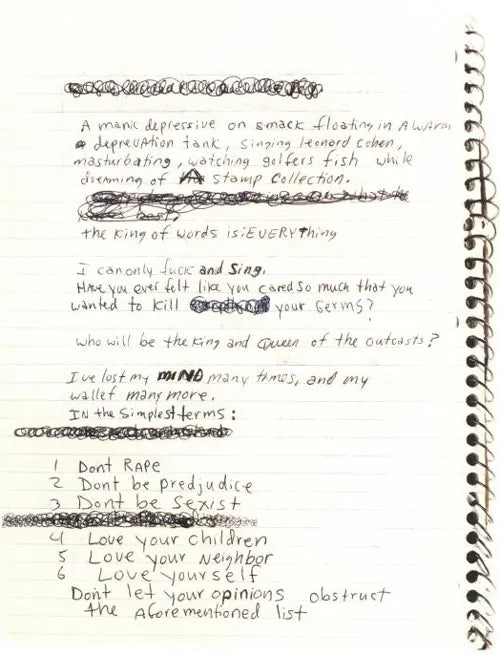 A manic depressive on smack floating in A WArm
depreUAtion tank, singing leonard cohen,
masturbating, watching golfers fish while
dreaming of A stamp collection.
best,
the King of words is: EVERYthing
I can only fuck and Sing.
Have you ever felt like you cared so much that you
wanted to kill your Germs?
who will be the king and Queen of the outcasts?
Ive lost my MIND many times, and my
wallet many more.
In the Simplest terms:
1 Dont RApe
2 Dont be predjudice
3 Dont be Sexist
4 Love your children
5 Love your Neighbor
6 Love yourself
Dont let your opinions obstruct
the Aforementioned list